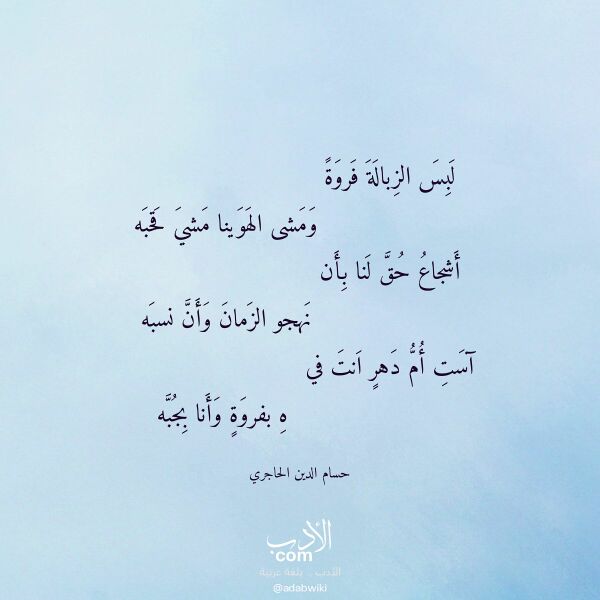 لَبِسَ الزِبالَةَ فَروَةً
وَمَشى الهَوَينا مَشيَ قَحبَه
أَشجاعُ حُقَّ لَنا بِأَن
نَهجو الزَمانَ وَأَنَّ نسبَه
آسَتِ أُمُّ دَهرٍ اَنتَ في
هِ بفروَةٍ وَأَنا بِجُبَّه
حسام الدين الحاجري
الأدب
com
الأدب .. بلغة عربية
@adabwiki